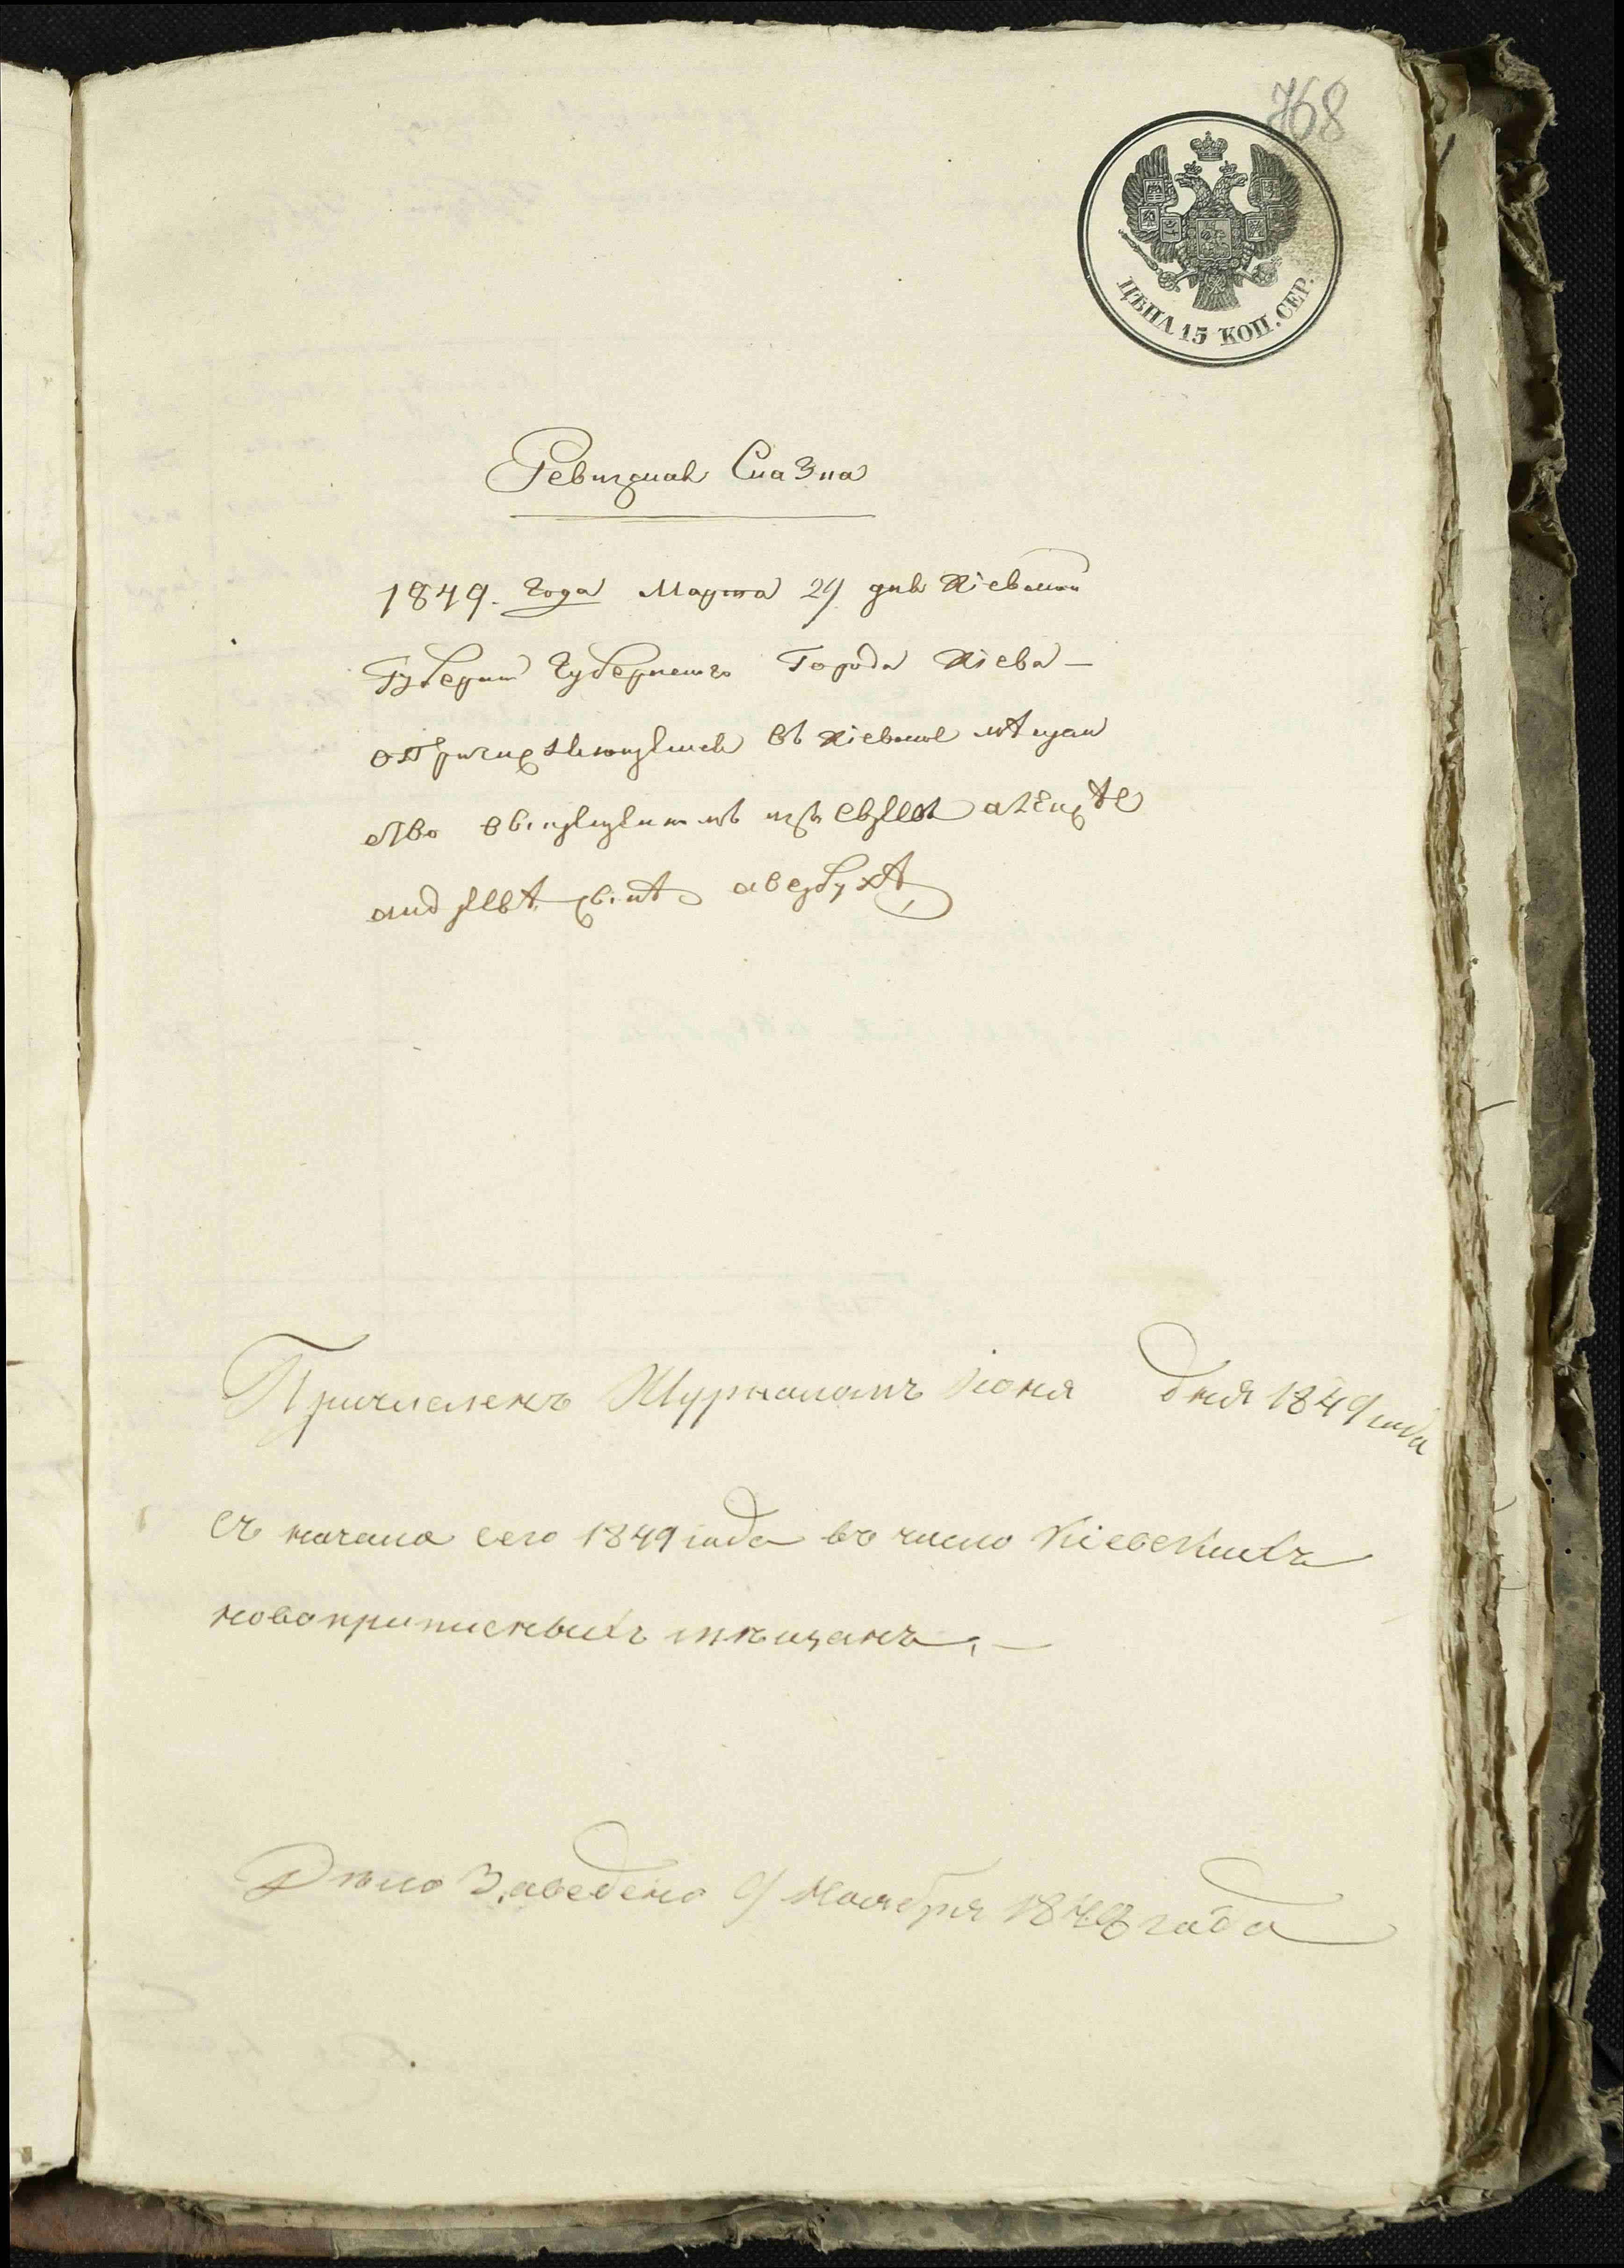 768
ЦѢНА 15 КОП. СЕР.
Ревизская Сказка
1849. года Марта 29 дня Кіевской
Губернии Губернского Города Кіева —
о причисляющемся въ Кіевское мѣщан
ство изъ евреевъ
авербухѣ
Причисленъ Журналомъ Іюня дня 1849 года
съ начала сего 1849 года въ число Кіевскихъ
новоприписныхъ мѣщанъ. —
Дѣло Заведено 9 Ноября 1848 года